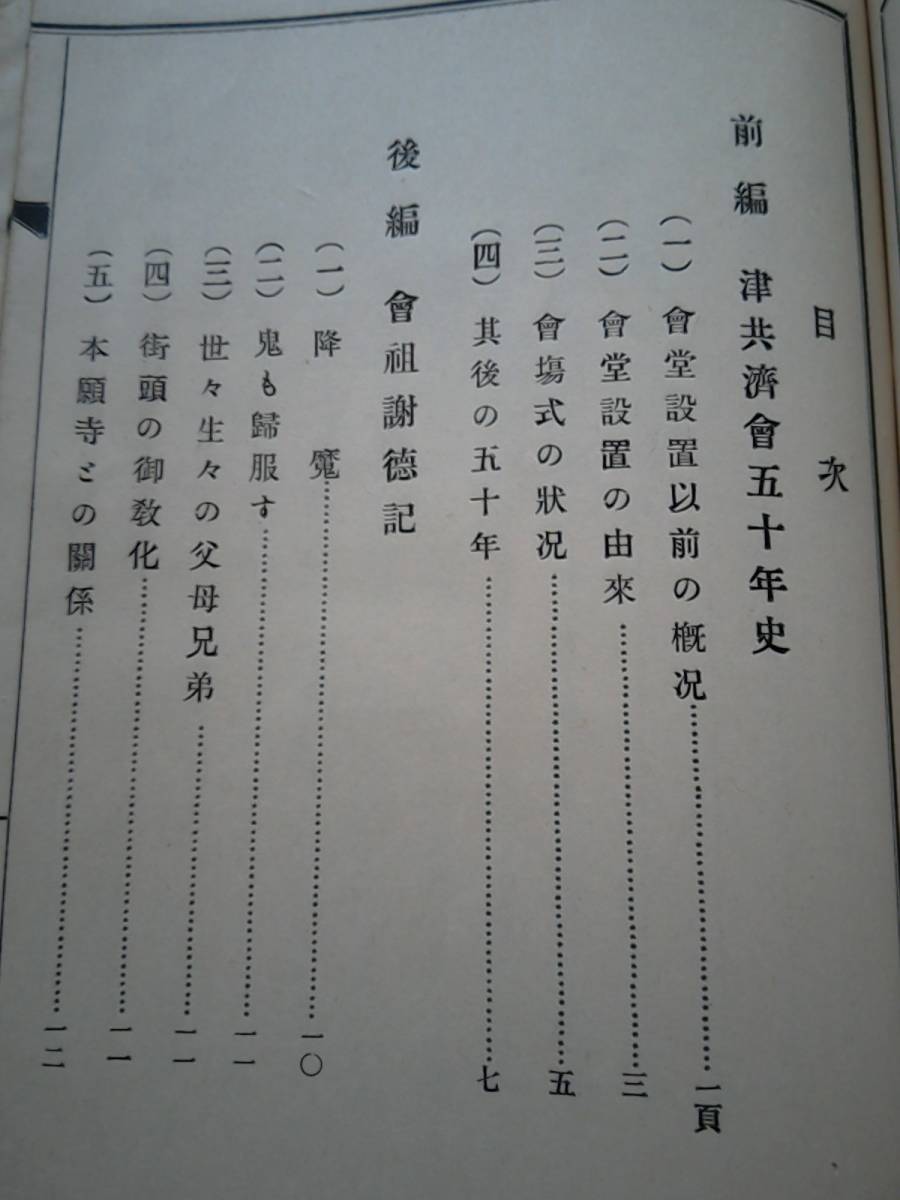 目次
前編 津共濟會五十年史
(一) 會堂設置以前の槪況……一頁
(二) 會堂設置の由來……三
(三) 會場式の狀況……五
(四) 其後の五十年……七
後編 會祖謝德記
(一) 降魔……一〇
(二) 鬼も歸服す……一一
(三) 世々生々の父母兄弟……一一
(四) 街頭の御敎化……一一
(五) 本願寺との關係……一二